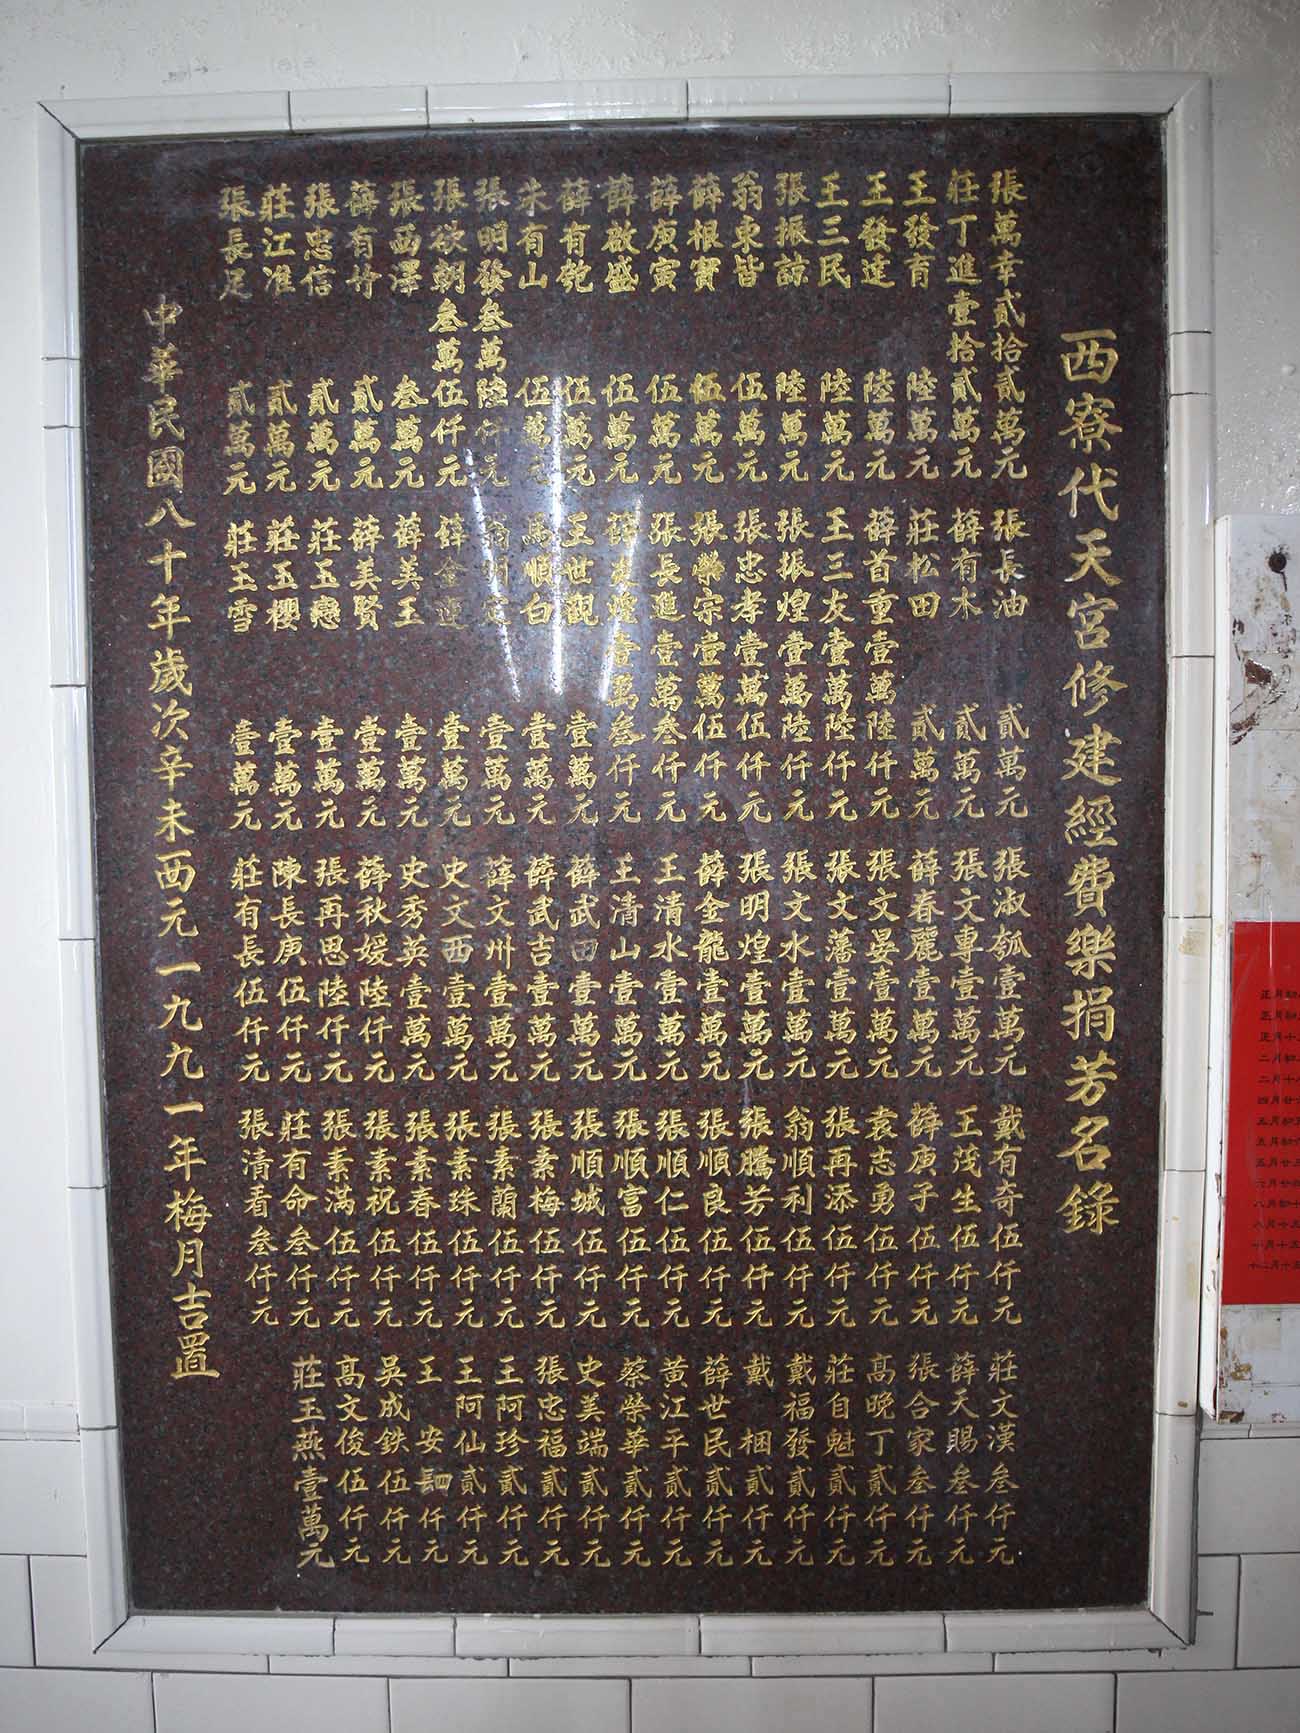 西寮代天宮修建經費樂捐芳名錄
張萬幸貳拾貳萬元
莊丁進壹拾貳萬元
王發育陸萬元
王發達陸萬元
王三民陸萬元
張振諒陸萬元
翁東皆伍萬元
薛根寶伍萬元
薛庚寅伍萬元
薛啟盛伍萬元
薛有匏伍萬元
朱有山伍萬元
張明發叁萬陸仟元
張欲朝叁萬伍仟元
張西澤叁萬元
薛有舟貳萬元
張忠信貳萬元
莊江准貳萬元
張長足貳萬元
張長油貳萬元
薛有木貳萬元
莊松田貳萬元
薛首重壹萬陸仟元
王三友壹萬陸仟元
張振煌壹萬陸仟元
張忠孝壹萬伍仟元
張榮宗壹萬伍仟元
張長進壹萬叁仟元
薛 煌壹萬叁仟元
王世觀壹萬元
萬順白壹萬元
翁明 壹萬元
薛金蓮壹萬元
薛美玉壹萬元
薛美賢壹萬元
莊玉戀壹萬元
莊玉櫻壹萬元
莊玉雪壹萬元
張淑瓠壹萬元
張文專壹萬元
薛春麗壹萬元
張文晏壹萬元
張文藩壹萬元
張文水壹萬元
張明煌壹萬元
薛金龍壹萬元
王清水壹萬元
王清山壹萬元
薛武田壹萬元
薛武吉壹萬元
薛文州壹萬元
史文西壹萬元
史秀英壹萬元
薛秋媛陸仟元
張再思陸仟元
陳長庚伍仟元
莊有長伍仟元
戴有奇伍仟元
王茂生伍仟元
薛庚子伍仟元
袁志勇伍仟元
張再添伍仟元
翁順利伍仟元
張騰芳伍仟元
張順良伍仟元
張順仁伍仟元
張順富伍仟元
張順城伍仟元
張素梅伍仟元
張素蘭伍仟元
張素珠伍仟元
張素春伍仟元
張素祝伍仟元
張素滿伍仟元
莊有命叁仟元
張清看叁仟元
莊文漢叁仟元
薛天賜叁仟元
張合家叁仟元
高晚丁貳仟元
莊自魁貳仟元
戴福發貳仟元
戴梱貳仟元
薛世民貳仟元
黃江平貳仟元
蔡榮華貳仟元
史美端貳仟元
張忠福貳仟元
王阿珍貳仟元
王阿仙貳仟元
王安 仟元
吳成鉄伍仟元
高文俊伍仟元
莊玉燕壹萬元
中華民國八十年歲次辛未西元一九九一年梅月吉置